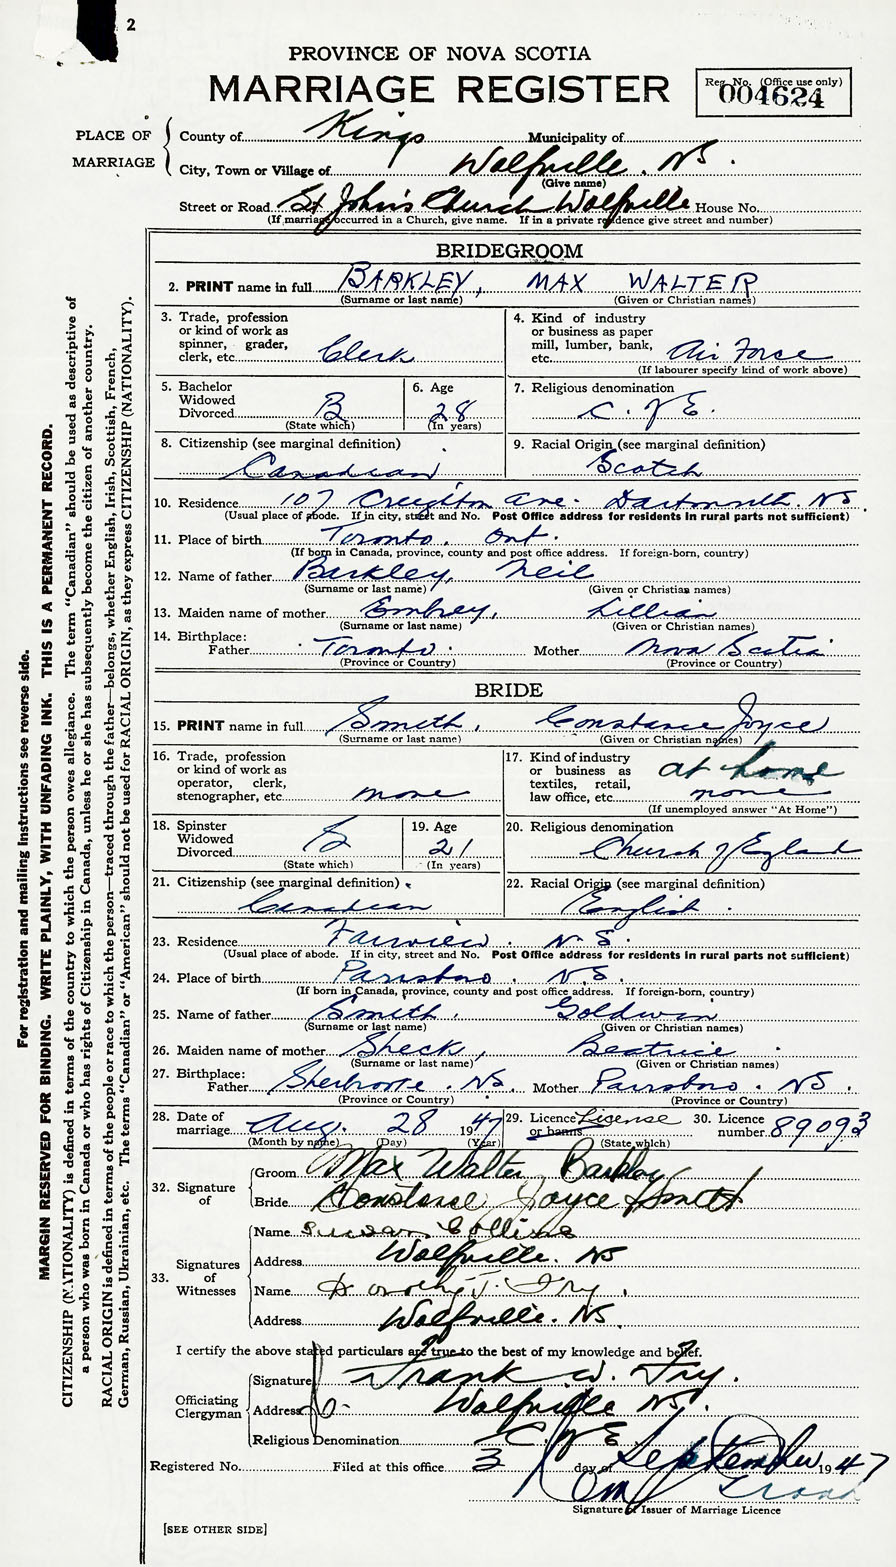 2
PROVINCE OF NOVA SCOTIA
MARRIAGE REGISTER
Reg. No. (Office use only)
004624
PLACE OF MARRIAGE
County of Kings Municipality of
City, Town or Village of Wolfville. NS.
(Give name)
Street or Road St John's Church Wolfville House No.
(If marriage occurred in a Church, give name. If in a private residence give street and number)
BRIDEGROOM
2. PRINT name in full BARKLEY, MAX WALTER
(Surname or last name) (Given or Christian names)
3. Trade, profession
or kind of work as
spinner, grader,
clerk, etc. Clerk
4. Kind of industry
or business as paper
mill, lumber, bank,
etc. Air Force
(If labourer specify kind of work above)
5. Bachelor
Widowed
Divorced B
(State which)
6. Age
28
(In years)
7. Religious denomination
C. of E.
8. Citizenship (see marginal definition)
Canadian
9. Racial Origin (see marginal definition)
Scotch
10. Residence 107 Creighton ave. Dartmouth. NS.
(Usual place of abode. If in city, street and No. Post Office address for residents in rural parts not sufficient)
11. Place of birth Toronto. Ont.
(If born in Canada, province, county and post office address. If foreign-born, country)
12. Name of father Barkley, Neil
(Surname or last name) (Given or Christian names)
13. Maiden name of mother Embrey, Lillian
(Surname or last name) (Given or Christian names)
14. Birthplace:
Father Toronto. Mother Nova Scotia
(Province or Country) (Province or Country)
BRIDE
15. PRINT name in full Smith, Constance Joyce
(Surname or last name) (Given or Christian names)
16. Trade, profession
or kind of work as
operator, clerk,
stenographer, etc. none
17. Kind of industry
or business as
textiles, retail,
law office, etc. at home
none
(If unemployed answer "At Home")
18. Spinster
Widowed
Divorced S
(State which)
19. Age
21
(In years)
20. Religious denomination
Church of England
21. Citizenship (see marginal definition)
Canadian
22. Racial Origin (see marginal definition)
English.
23. Residence Fairview. N.S.
(Usual place of abode. If in city, street and No. Post Office address for residents in rural parts not sufficient)
24. Place of birth Parrsboro. N.S.
(If born in Canada, province, county and post office address. If foreign-born, country)
25. Name of father Smith. Goldwin
(Surname or last name) (Given or Christian names)
26. Maiden name of mother Sheck, Beatrice
(Surname or last name) (Given or Christian names)
27. Birthplace:
Father Sherbrooke. NS. Mother Parrsboro. NS.
(Province or Country) (Province or Country)
28. Date of
marriage Aug. 28 1947
(Month by name) (Day) (Year)
29. Licence License
or banns
(State which)
30. Licence
number 89093
32. Signature
of
Groom Max Walter Barkley
Bride Constance Joyce Smith
33. Signatures
of
Witnesses
Name Susan Collins
Address Wolfville. NS
Name Dorothy J. Fry.
Address Wolfville. NS.
I certify the above stated particulars are true to the best of my knowledge and belief.
Officiating
Clergyman
Signature Frank W. Fry.
Address Wolfville NS.
Religious Denomination C. of E.
Registered No. Filed at this office 3 day of September 1947
Signature of Issuer of Marriage Licence
[SEE OTHER SIDE]
For registration and mailing instructions see reverse side.
MARGIN RESERVED FOR BINDING. WRITE PLAINLY, WITH UNFADING INK. THIS IS A PERMANENT RECORD.
CITIZENSHIP (NATIONALITY) is defined in terms of the country to which the person owes allegiance. The term "Canadian" should be used as descriptive of
a person who was born in Canada or who has rights of Citizenship in Canada, unless he or she has subsequently become the citizen of another country.
RACIAL ORIGIN is defined in terms of the people or race to which the person—traced through the father—belongs, whether English, Irish, Scottish, French,
German, Russian, Ukrainian, etc. The terms "Canadian" or "American" should not be used for RACIAL ORIGIN, as they express CITIZENSHIP (NATIONALITY).